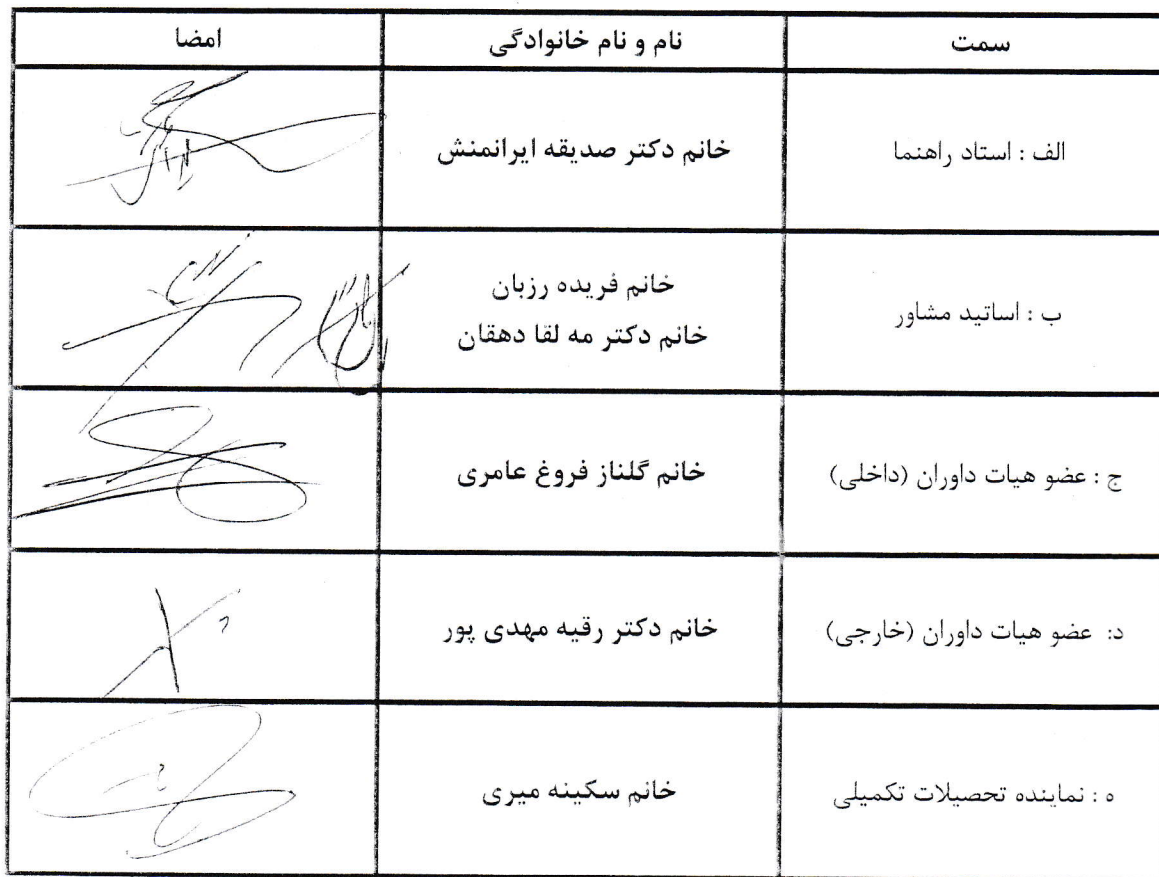 سمت
نام و نام خانوادگی
امضا
الف : استاد راهنما
خانم دکتر صدیقه ایرانمنش
ب : اساتید مشاور
خانم فریده رزبان
خانم دکتر مه لقا دهقان
ج : عضو هیات داوران (داخلی)
خانم گلناز فروغ عامری
د: عضو هیات داوران (خارجی)
خانم دکتر رقیه مهدی پور
ه : نماینده تحصیلات تکمیلی
خانم سکینه میری